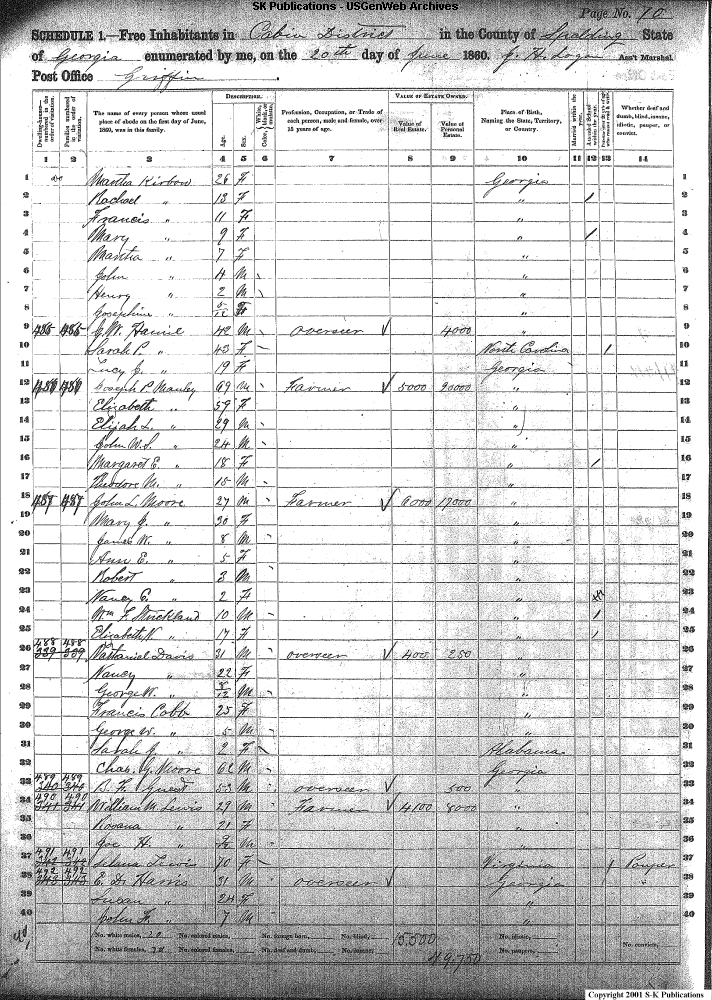 SK Publications - USGenWeb Archives
Page No. 10
SCHEDULE 1.—Free Inhabitants in Cabin District in the County of Spalding State
of Georgia enumerated by me, on the 20th day of June 1860. J. H. Logan Ass't Marshal.
Post Office Griffin
DESCRIPTION. VALUE OF ESTATE OWNED.
Dwelling-houses—numbered in the order of visitation. Families numbered in the order of visitation. The name of every person whose usual place of abode on the first day of June, 1860, was in this family. Age. Sex. Color, White, black, or mulatto. Profession, Occupation, or Trade of each person, male and female, over 15 years of age. Value of Real Estate. Value of Personal Estate. Place of Birth, Naming the State, Territory, or Country. Married within the year. Attended School within the year. Whether deaf and dumb, blind, insane, idiotic, pauper, or convict.
1 2 3 4 5 6 7 8 9 10 11 12 13 14
1 do Martha 26 F Georgia 1
2 Rachael " 13 F " / 2
3 Francis " 11 F " 3
4 Mary " 9 F " / 4
5 Martha " 7 F " 5
6 John " 4 M " 6
7 Henry " 2 M " 7
8 Josephine " F " 8
9 485 485 42 M overseer 4000 " 9
10 Sarah P. " 43 F North Carolina / 10
11 Lucy J. " 19 F Georgia 11
12 486 486 Joseph P. Manley 69 M Farmer 5000 90000 " 12
13 Elizabeth " 59 F " 13
14 Elijah L. " 29 M " 14
15 John W.S. " 24 M " 15
16 Margaret E. " 18 F " / 16
17 Theodore M. " 15 M " 17
18 487 487 John L. Moore 27 M Farmer 6000 17000 " 18
19 Mary J. " 30 F " 19
20 James W. " 8 M " 20
21 Ann E. " 5 F " 21
22 Robert " 3 M " 22
23 Nancy E. " 2 F " 23
24 Wm F. Strickland 10 M " / 24
25 Elizabeth N. " 17 F " / 25
26 488 488 339 339 Nathaniel Davis 31 M overseer 400 250 " 26
27 Nancy " 22 F " 27
28 George W. " 8/12 M " 28
29 Francis Cobb 25 F " 29
30 George W. " 5 M " 30
31 Sarah J. " 2 F Alabama 31
32 Chas. G. Moore 62 M Georgia 32
33 489 489 340 340 B. F. Guest 53 M overseer 500 " 33
34 490 490 341 341 William M. Lewis 29 M Farmer 4100 8000 " 34
35 Rosana " 21 F " 35
36 Joe H. " M " 36
37 491 491 342 342 Lewis 70 F Virginia / Pauper 37
38 492 492 343 343 E. D. Harris 31 M overseer Georgia " 38
39 Susan " 24 F " 39
40 John F. " 7 M " 40
No. white males, 20 No. colored males, No. foreign born, No. blind, 15,500 No. idiotic,
No. white females, 20 No. colored females, No. deaf and dumb, No. insane, No. paupers, No. convicts,
Copyright 2001 S-K Publications